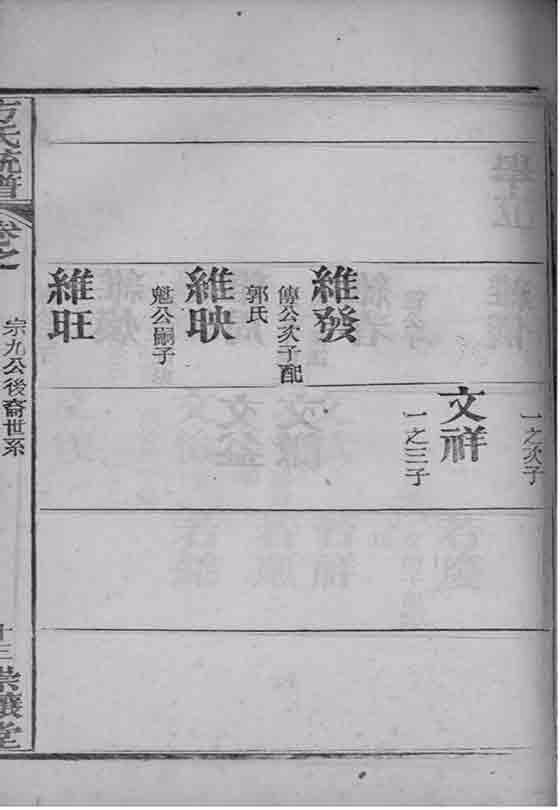 一之次子
文祥
一之三子
維發
傳公次子配
郭氏
維映
魁公嗣子
維旺
方氏統譜
卷之
宗九公後裔世系
十三